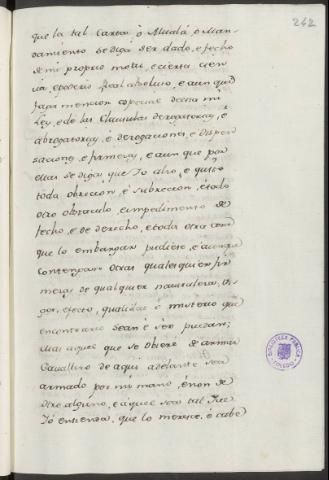 262
que la tal Carta, ò Alvalá, ò Man-
damiento se diga ser dado, e fecho
de mi proprio motu, e cierta cien
cia, epoderio Real absoluto, e aunque
faga mencion especial desta mi
Ley, e de las Clausulas derogatorias, è
abrogatorias, è derogaciones, è Dispen
saciones, e firmezas, e aun que por
ellas se diga que Yo alzo, e quito
toda obrecion, è subrecion, è todo
otro obstaculo, e impedimento de
fecho, e de derecho, e toda otra cosa
que lo embargar pudiese, è aunque
contengan otras qualesquier fir
mezas de qualquier naturaleza, Vi
gor, efecto, qualidad è misterio que
en contrario sean è ser puedan;
Mas aquel que se obiere de armar
Cavallero de aqui adelante sea
armado por mi mano, è non de
otro alguno, e aquel sea tal que
Yó entienda, que lo merece, è cabe
BIBLIOTECA PUBLICA
TOLEDO